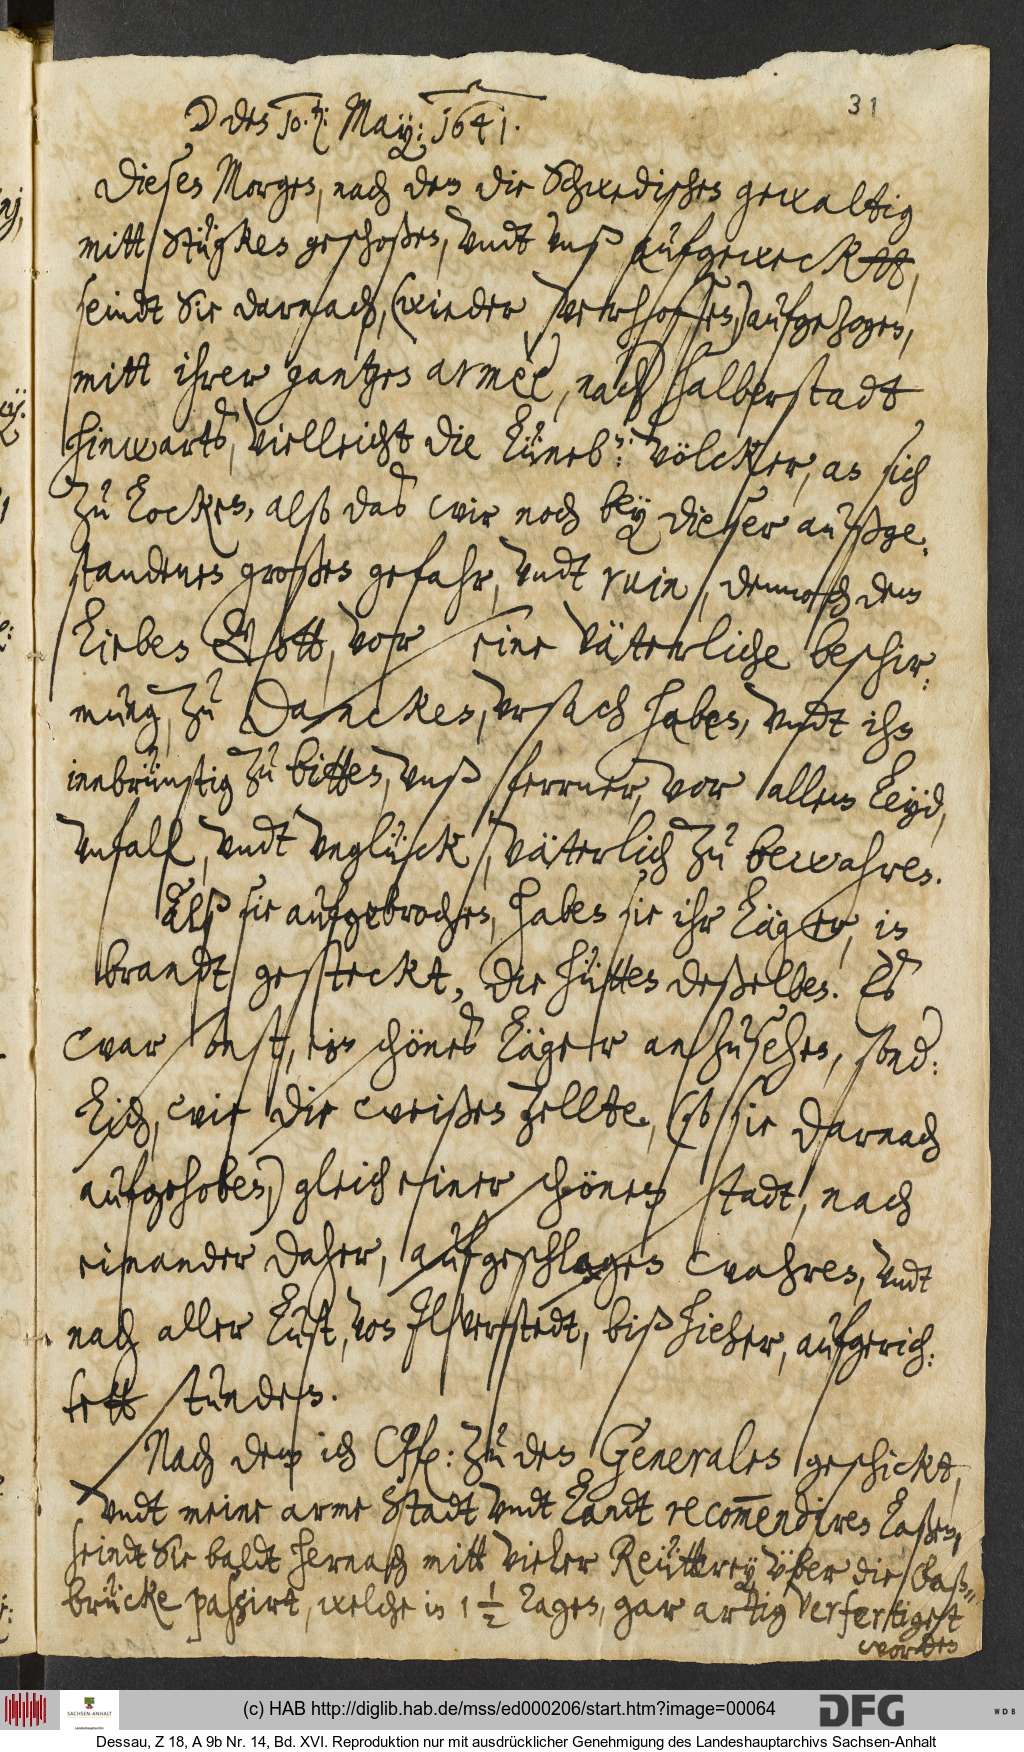 31
☽ den 10. t: May: 1641.
Diesen Morgen, nach dem die Schwedischen gewaltig
mitt Stügken geschoßen, vndt vnß aufgeweckett,
seindt Sie darnach, (wieder verhoffen,) aufgezogen,
mitt ihrer gantzen armèe, nach Halberstadt
hinwarts, vielleicht die Lüneb: völcker, an sich
zu Locken, alß das wir noch bey dieser außge-
standenen großen gefahr, vndt ruin, dennoch dem
Lieben Gott, vor seine väterliche beschir:
mung, zu Dancken, vrsach haben, vndt ihn
innbrünstig zu bitten, vnß ferrner, vor allem Leyd,
vnfall, vndt vnglück, väterlich zu bewahren.
Alß sie aufgebrochen, haben sie ihr Läger, in
brandt gesteckt, die hütten deßelben. Es
war sonst, ein schönes Läger anzusehen, sond:
Lich, wie die weißen zellte, (so sie darnach
aufgehoben,) gleich einer schönen stadt, nach
einander daher, aufgeschlagen wahren, vndt
nach aller Lust, von Ilverstedt, biß hieher, aufgerich:
tett stunden.
Nach dem ich zu den Generalen geschickt,
vndt meine arme Stadt vndt Landt recom̄endiren Laßen,
seindt Sie baldt hernach mitt vieler Reütterey vber die Saal:
brücke passirt, welche in 1 1/2 Tagen, gar artig verfertiget
worden
(c) HAB http://diglib.hab.de/mss/ed000206/start.htm?image=00064
SACHSEN-ANHALT
DFG
WDB
Dessau, Z 18, A 9b Nr. 14, Bd. XVI. Reproduktion nur mit ausdrücklicher Genehmigung des Landeshauptarchivs Sachsen-Anhalt